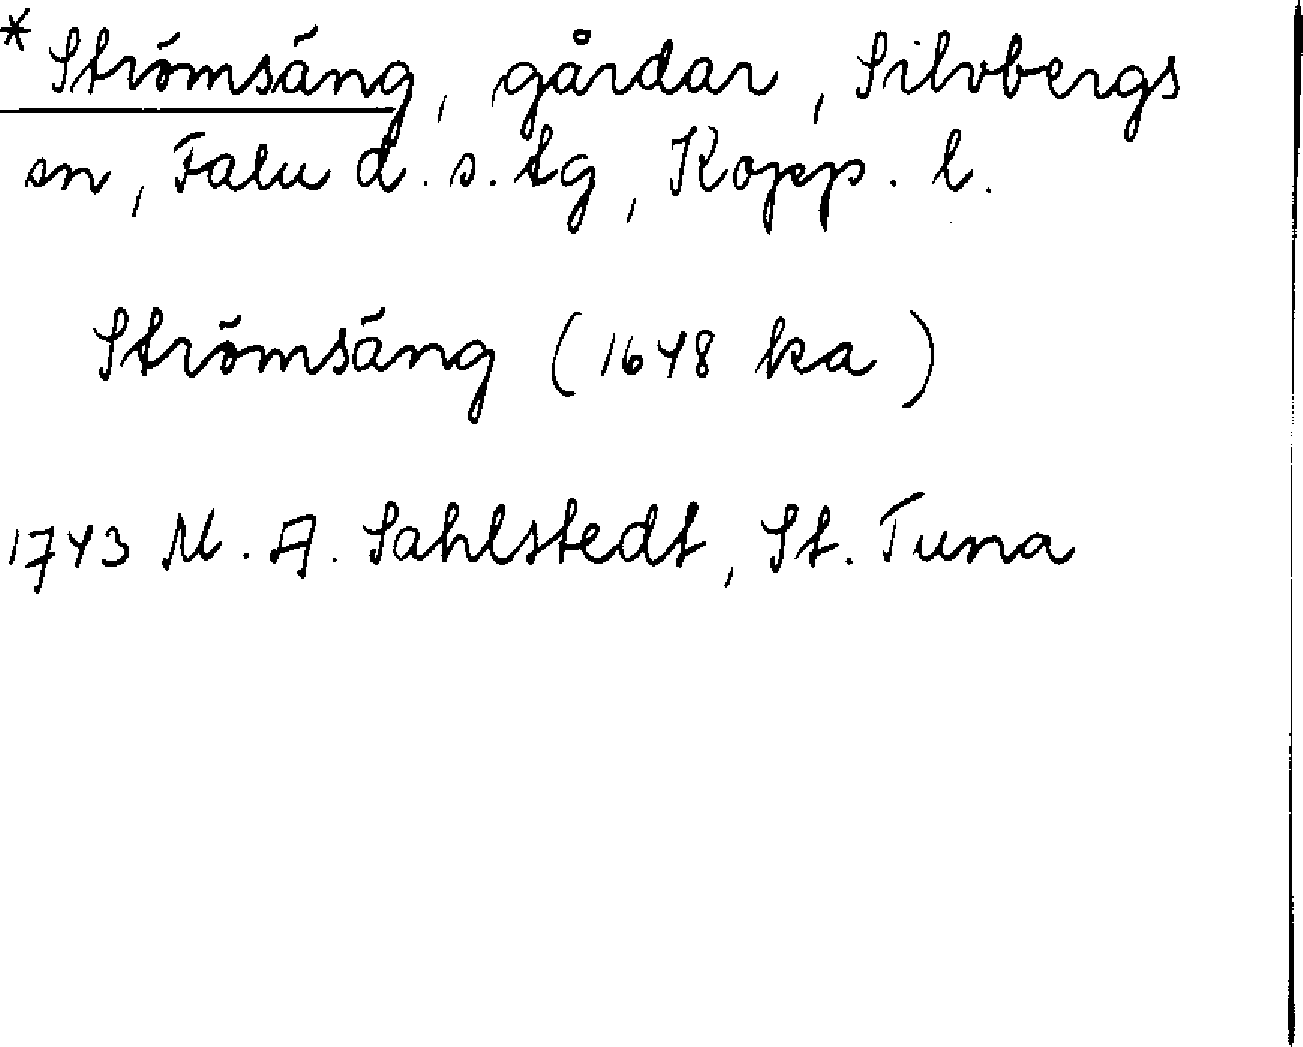 *Strömsäng, gårdar, Silvbergs
sn, Falu d. s. tg, Kopp. l.
Strömsäng (1648 ka)
1743 M. A. Sahlstedt, St. Tuna